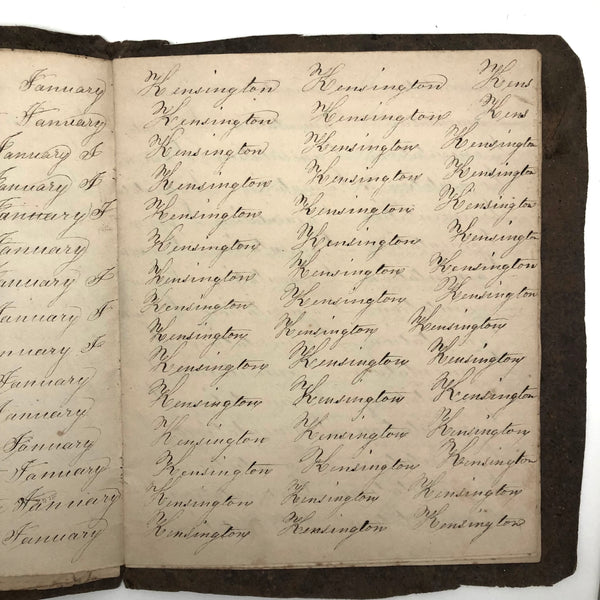 January
January
January J
January J
January J
January
January J
January J
January J
January
January
January
January
January
January
Kensington Kensington Kens
Kensington Kensington Kens
Kensington Kensington Kensington
Kensington Kensington Kensington
Kensington Kensington Kensington
Kensington Kensington Kensington
Kensington Kensington Kensington
Kensington Kensington Kensington
Kensington Kensington Kensington
Kensington Kensington Kensington
Kensington Kensington Kensington
Kensington Kensington Kensington
Kensington Kensington Kensington
Kensington Kensington Kensington
Kensington Kensington Kensington